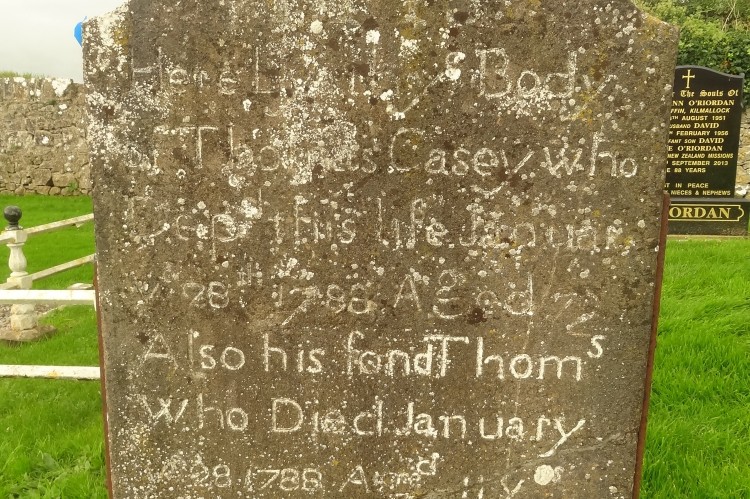 Here Lieth yᵉ Body
of Thomas Casey who
Depᵗ this life Januar
yᵉ 28ᵗʰ 1788 Aged 72
Also his fond Thomˢ
who Died January
28 1788
The Souls Of
NN O'RIORDAN
FFIN, KILMALLOCK
TH AUGUST 1951
USBAND DAVID
FEBRUARY 1956
FANT SON DAVID
E O'RIORDAN
NEW ZEALAND MISSIONS
SEPTEMBER 2013
88 YEARS
ST IN PEACE
NIECES & NEPHEWS
RIORDAN